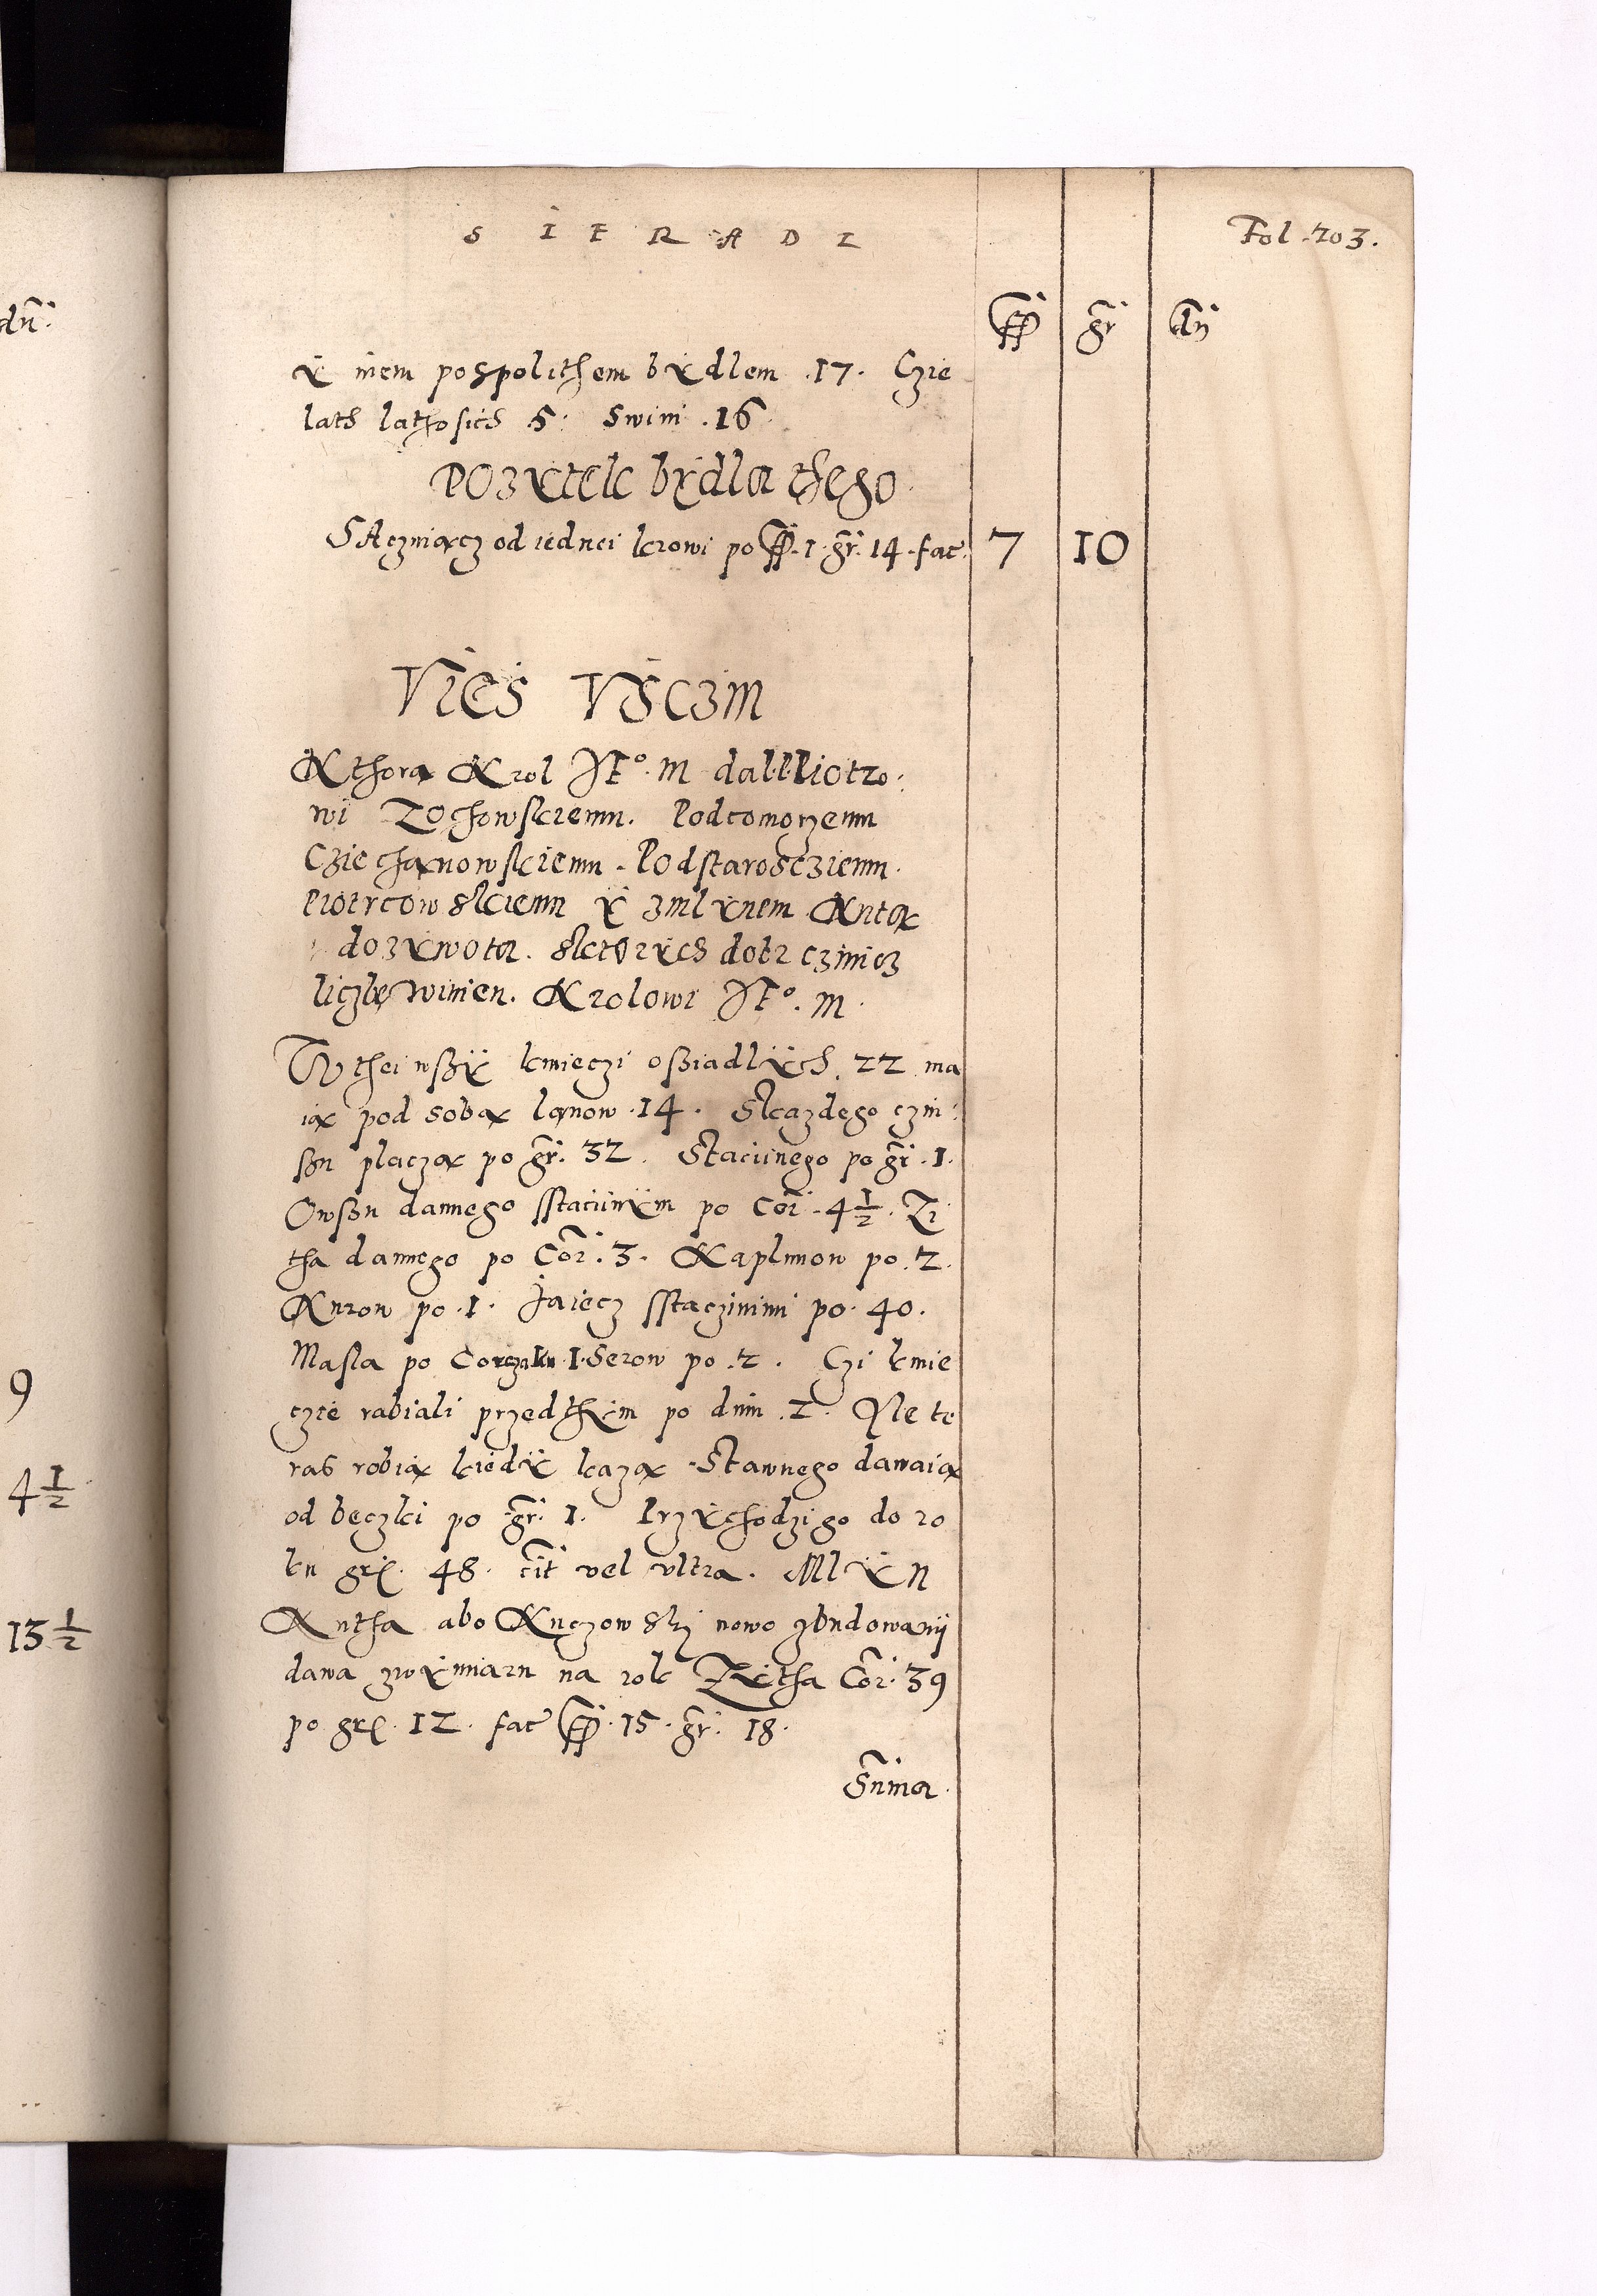 SIERADI
Fol. 203.
dn̄.
ff gr dn
ÿ inem pospolithem bÿdlem .17. Czie
lath lathosich .5. Swini .16.
POZÿtek bÿdla thego
SAczuiącz od iednei krowi po ff. 1. gr. 14. fac. 7 10
Vies Vsczin
Kthora Krol Je°. M dal Piotro:
wi Zochowskiemu. Podcomorzemu
Cziechanowskiemu. Podstaroscziemu.
Piotrcowskiemu ÿ z mlÿnem Kuta
do zÿwota. sktorÿch dobr czinicz
liczbę winien. Krolowi Je°. M.
W thei wszÿ kmieczi osziadlÿch. 22 ma
ią pod sobą lanow .14. Skazdego czin:
szu placzą po gr. 32. Staciinego po gr. 1.
Owszu dannego sstaciinÿm po Cor. 4 1/2. Zi
tha dannego po Cor. 3. Kaplunow po .2.
Kurow po .1. Jaiecz sstaczinimi po. 40.
Masla po Corczaku 1. Serow po .2. Czi kmie
czie rabiali przedthÿm po dnin .2. Ale te
ras robią kiedÿ kazą. Stawnego dawaią
od beczki po gr. 1. Przÿchodzi go do ro
ku grs. 48. cit vel vltra. MlÿN
Kutha abo Kuczowski nowo zbudowanÿ
dawa zwÿmiaru na rok Zÿtha Cor. 39
po grs. 12. fac ff. 15. gr. 18.
Suma.
9
4 1/2
13 1/2